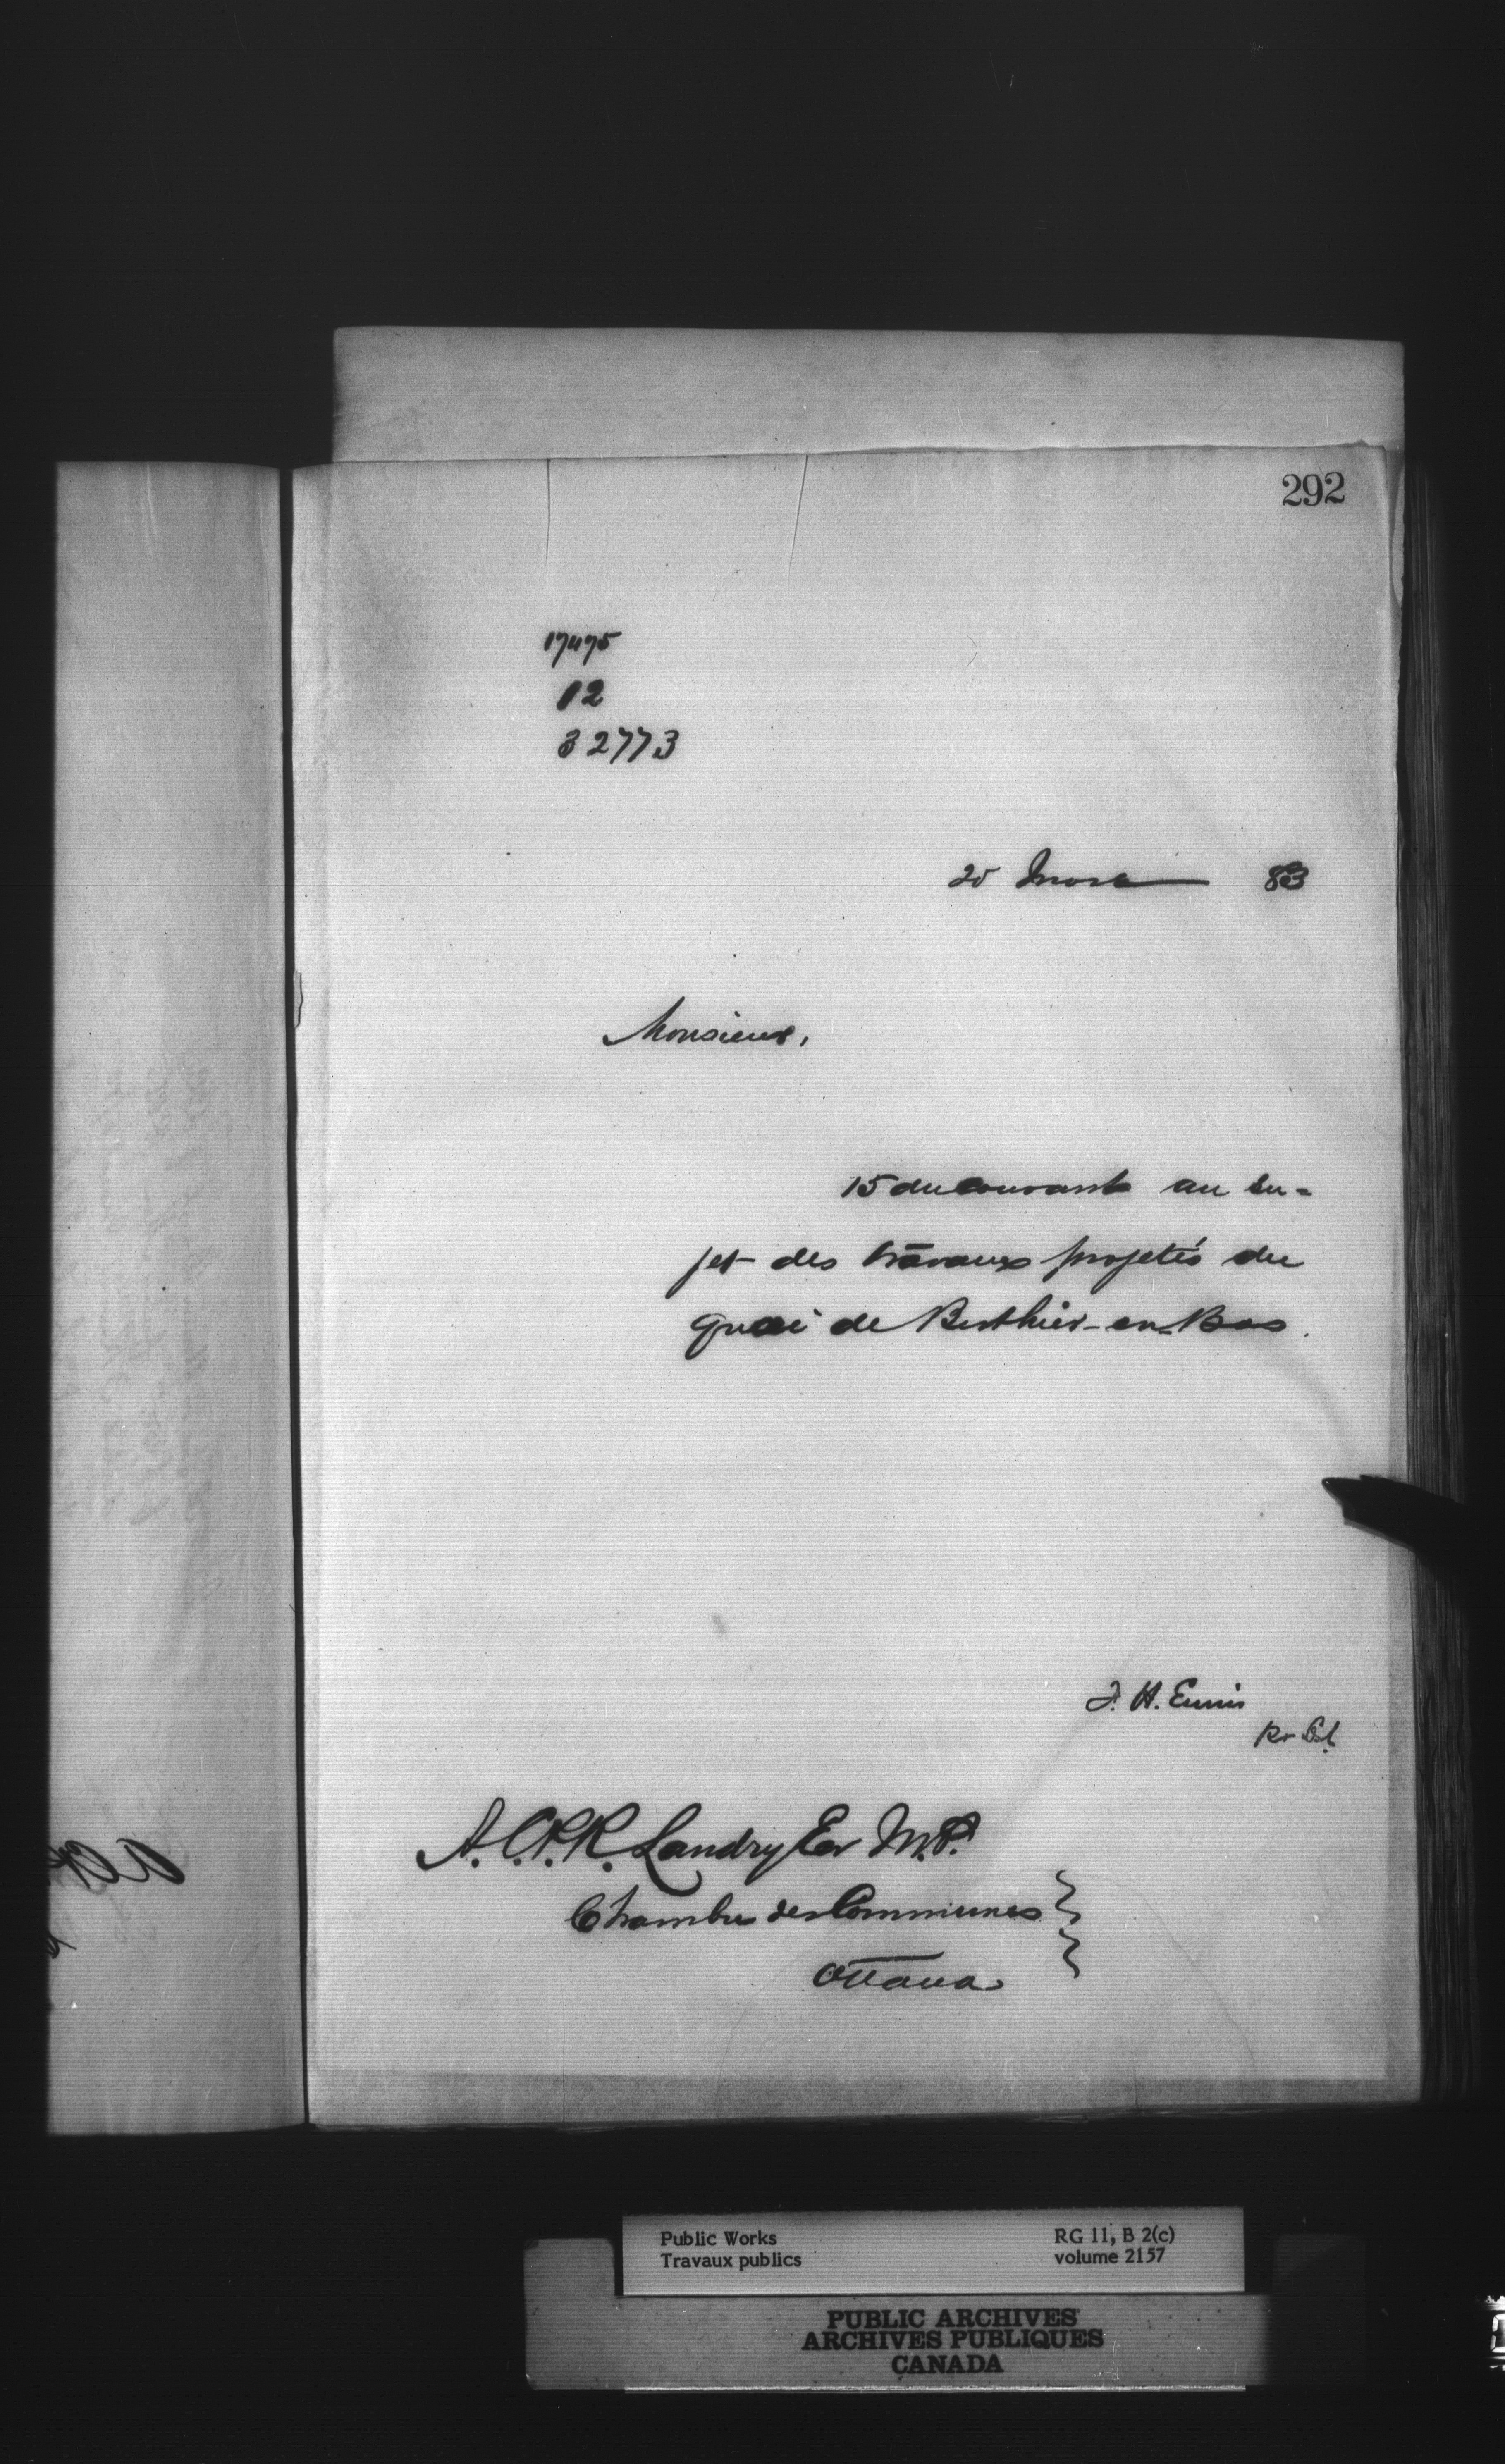 292
17475
12
32773
20 Mars 83
Monsieur,
15 du courant au su-
jet des travaux projetés du
quai de Berthier-en-Bas.
F. H. Ennis
A. C. P. R. Landry Esr M.P.
Chambre des Communes
Ottawa
Public Works
Travaux publics
RG 11, B 2(c)
volume 2157
PUBLIC ARCHIVES
ARCHIVES PUBLIQUES
CANADA